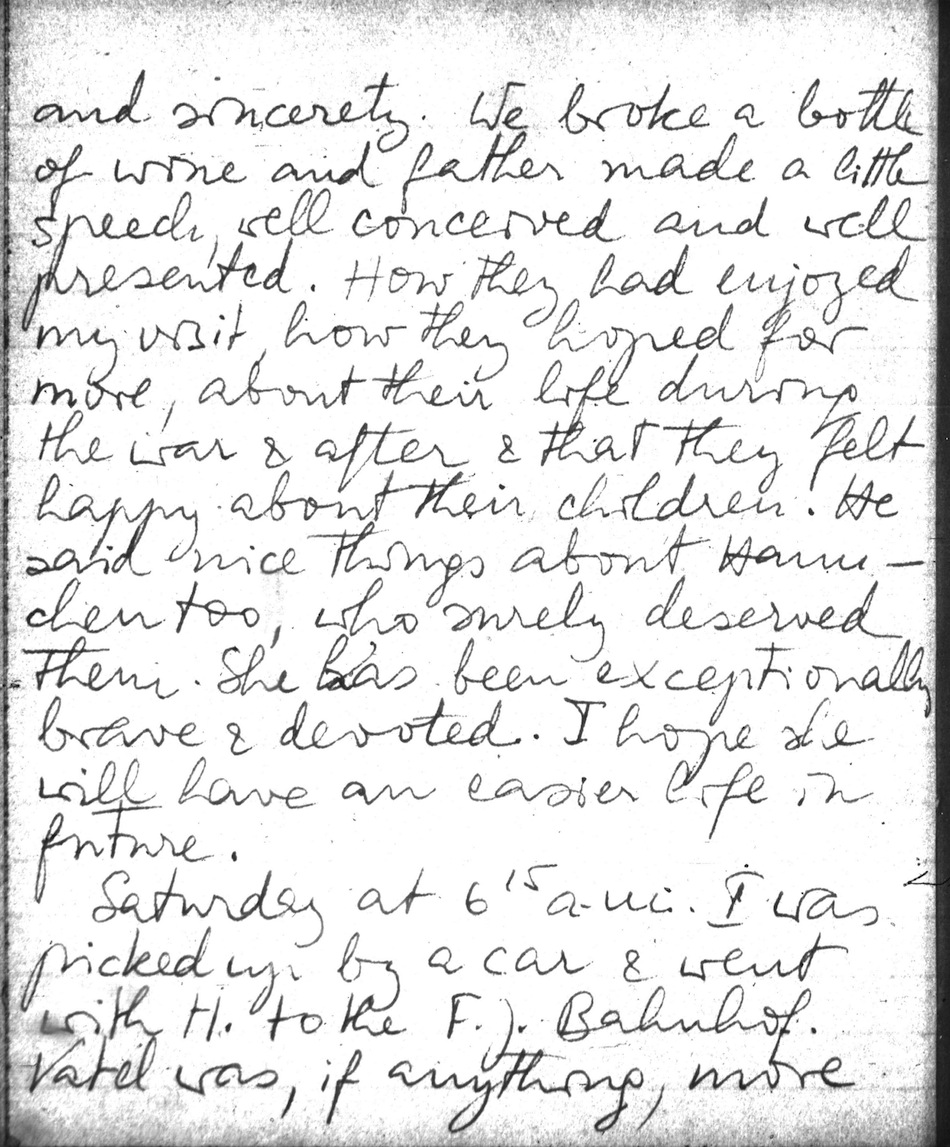 and sincerety. We broke a bottle
of wine and father made a little
speech, well conceived and well
presented. How they had enjoyed
my visit, how they hoped for
more, about their life during
the war & after & that they felt
happy about their children. He
said nice things about Hann-
chen too, who surely deserved
them. She has been exceptionally
brave & devoted. I hope she
will have an easier life in
future.
Saturday at 6 15 a.m. I was
picked up by a car & went
with H. to the F. J. Bahnhof.
Vatel was, if anything, more